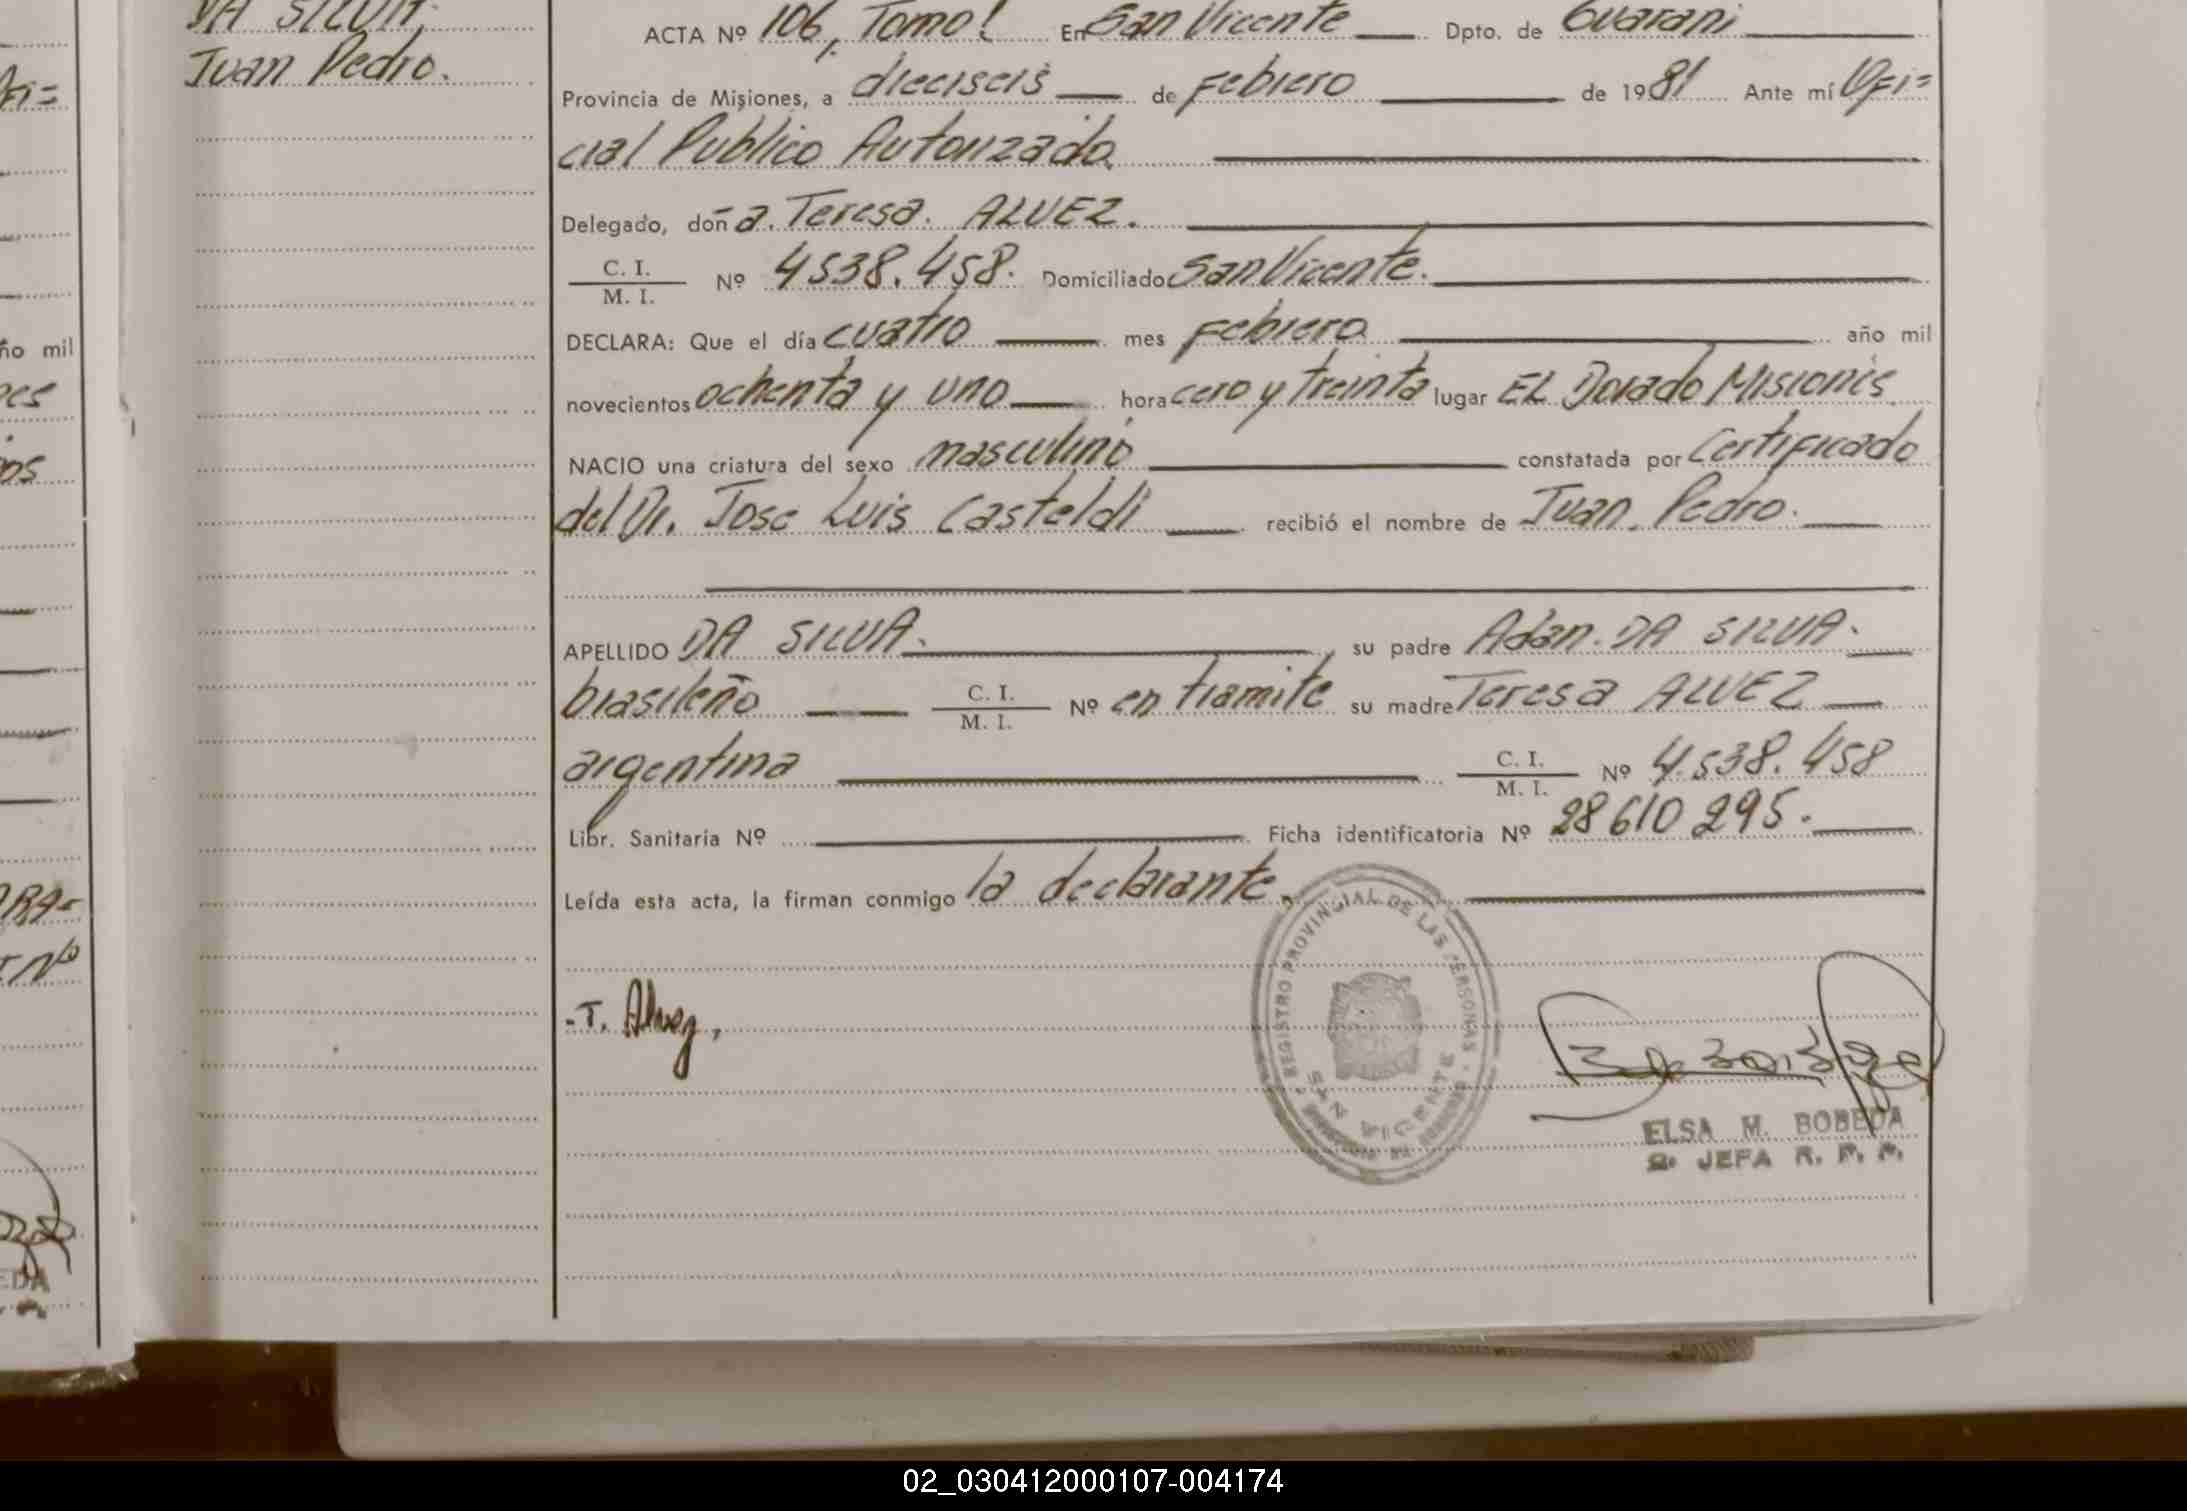 DA SILVA,
Juan Pedro.
ACTA Nº 106, Tomo I En San Vicente Dpto. de Guaraní
Provincia de Misiones, a dieciseis de Febrero de 1981 Ante mí Ofi=
cial Publico Autorizado
Delegado, doña. Teresa. ALVEZ.
C. I. / M. I. Nº 4538.458. Domiciliado San Vicente.
DECLARA: Que el día cuatro mes Febrero año mil
novecientos ochenta y uno hora cero y treinta lugar EL Dorado Misiones
NACIO una criatura del sexo masculino constatada por Certificado
del Dr. Jose Luis Casteldi recibió el nombre de Juan Pedro.
APELLIDO DA SILVA. su padre Adán DA SILVA.
brasileño C. I. / M. I. Nº en tramite su madre Teresa ALVEZ
argentina C. I. / M. I. Nº 4.538.458
Libr. Sanitaria Nº Ficha identificatoria Nº 28610295.
Leída esta acta, la firman conmigo la declarante.
REGISTRO PROVINCIAL DE LAS PERSONAS
SAN VICENTE
-T. Alvez,
ELSA M. BOBEDA
2º JEFA R. P. P.
ño mil
EDA
02_030412000107-004174